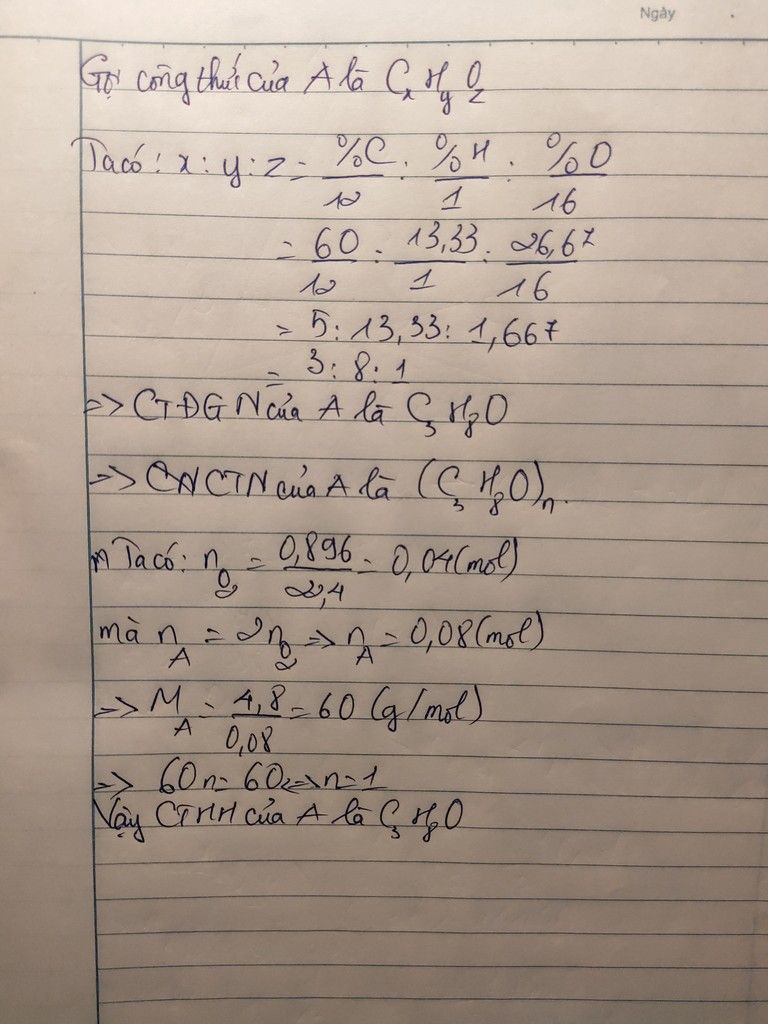 Ngày
Gọi công thức của A là CxHyOz
Ta có: x : y : z = %C/12 : %H/1 : %O/16
= 60/12 : 13,33/1 : 26,67/16
= 5 : 13,33 : 1,667
= 3 : 8 : 1
=> CTĐGN của A là C₃H₈O
=> CNCTN của A là (C₃H₈O)n.
Ta có: nO₂ = 0,896/22,4 = 0,04 (mol)
mà nA = 2nO₂ => nA = 0,08 (mol)
=> MA = 4,8/0,08 = 60 (g/mol)
=> 60n = 60 <=> n = 1
Vậy CTHH của A là C₃H₈O